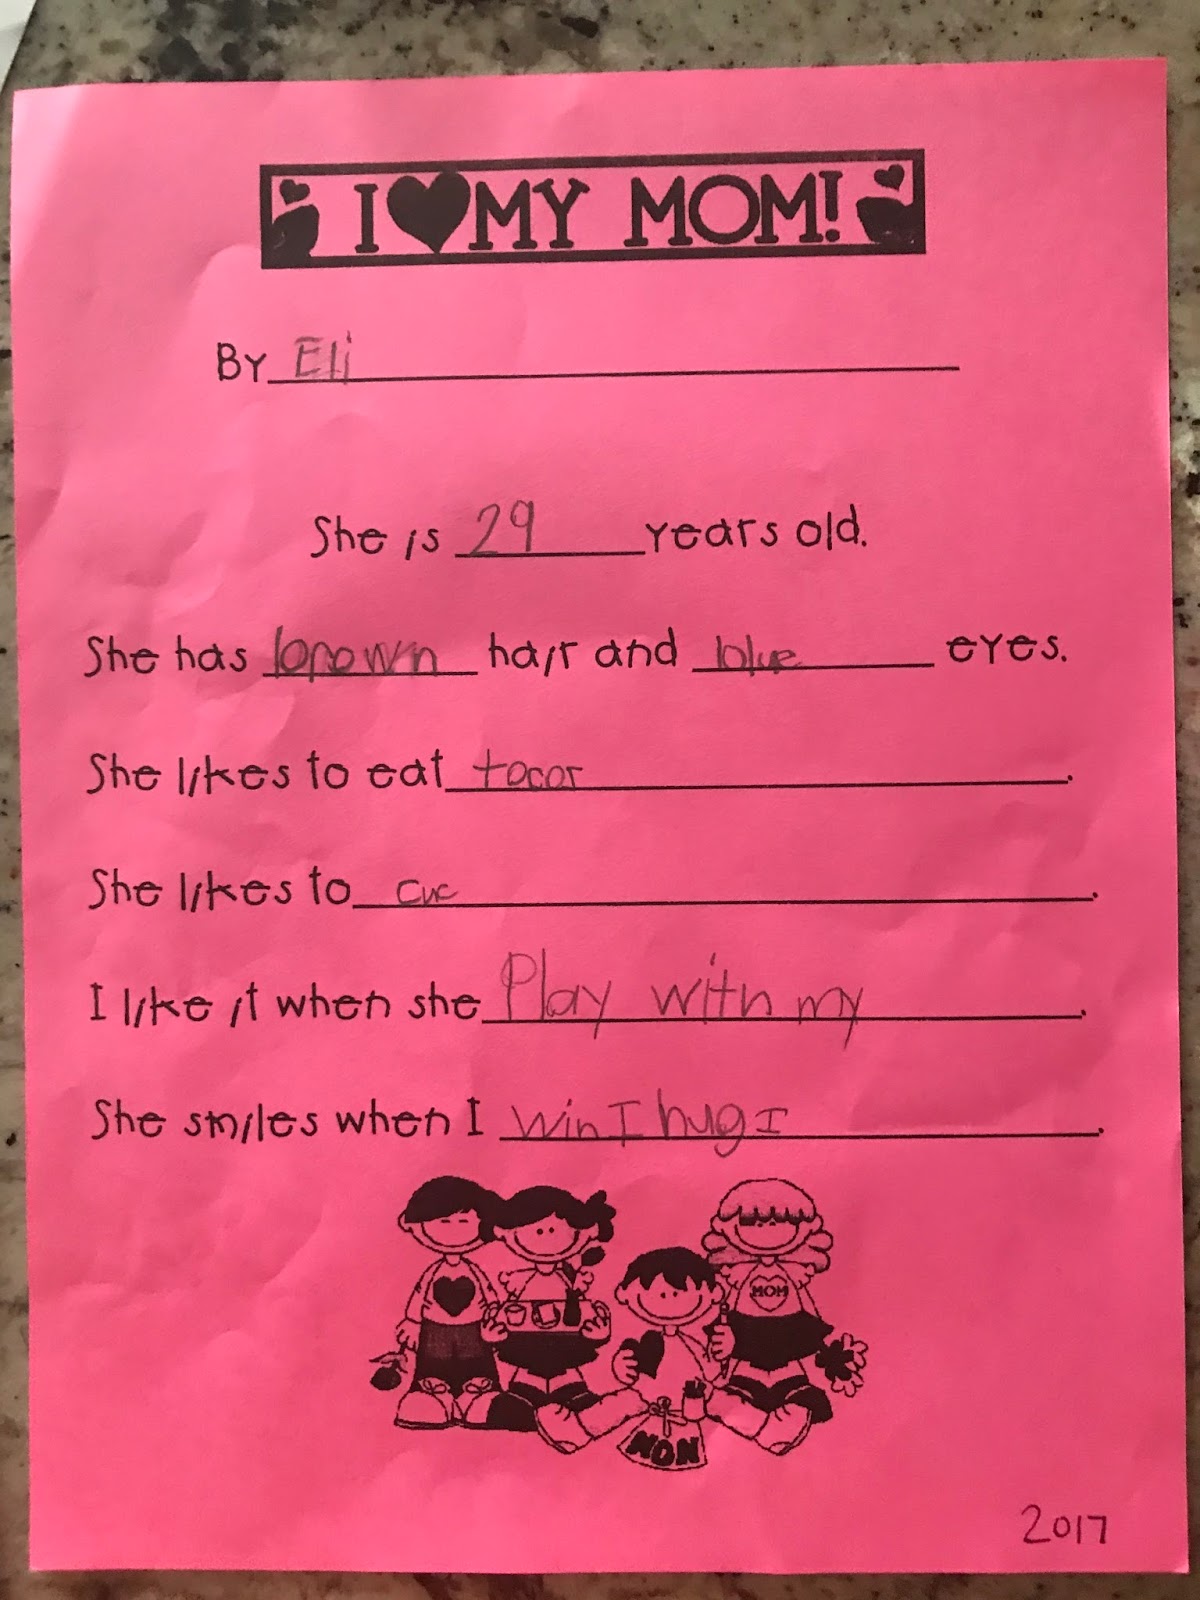 I ♥ MY MOM!
By Eli
She is 29 years old.
She has brown hair and blue eyes.
She likes to eat tocos.
She likes to cuc.
I like it when she Play with my.
She smiles when I win I hug I.
MOM
MOM
2017